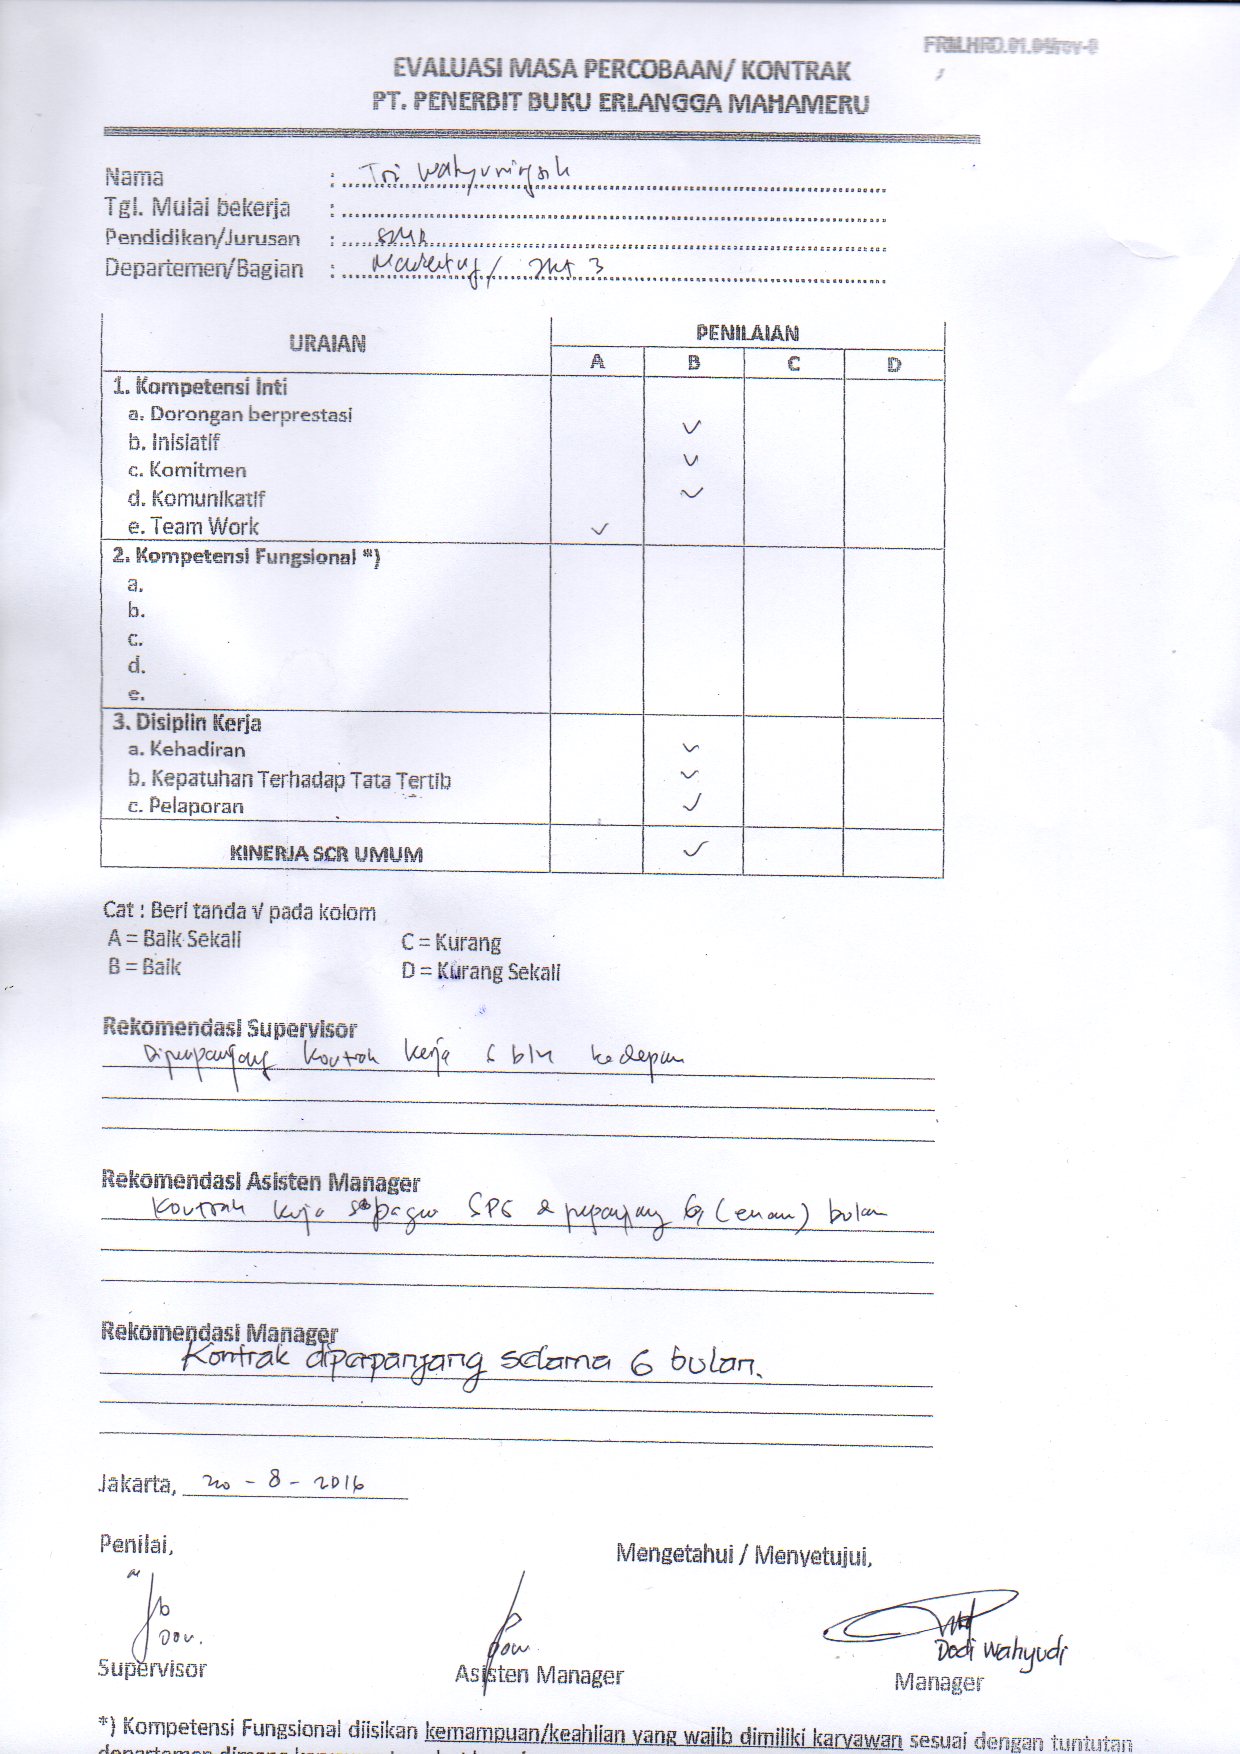 FRM.HRD.01.04/rev-0
EVALUASI MASA PERCOBAAN/ KONTRAK
PT. PENERBIT BUKU ERLANGGA MAHAMERU
Nama : Tri Wahyuningsih
Tgl. Mulai bekerja :
Pendidikan/Jurusan : SMA
Departemen/Bagian : Marketing / 3
URAIAN PENILAIAN
A B C D
1. Kompetensi Inti
a. Dorongan berprestasi
b. Inisiatif ✓
c. Komitmen ✓
d. Komunikatif ✓
e. Team Work ✓
2. Kompetensi Fungsional *)
a.
b.
c.
d.
e.
3. Disiplin Kerja
a. Kehadiran ✓
b. Kepatuhan Terhadap Tata Tertib ✓
c. Pelaporan ✓
KINERJA SCR UMUM ✓
Cat : Beri tanda √ pada kolom
A = Baik Sekali C = Kurang
B = Baik D = Kurang Sekali
Rekomendasi Supervisor
Diperpanjang Kontrak kerja 6 bln kedepan
Rekomendasi Asisten Manager
Kontrak kerja sebagai SPG di perpanjang 6 (enam) bulan
Rekomendasi Manager
Kontrak diperpanjang selama 6 bulan.
Jakarta, 20 - 8 - 2016
Penilai, Mengetahui / Menyetujui,
Dodi Wahyudi
Supervisor Asisten Manager Manager
*) Kompetensi Fungsional diisikan kemampuan/keahlian yang wajib dimiliki karyawan sesuai dengan tuntutan